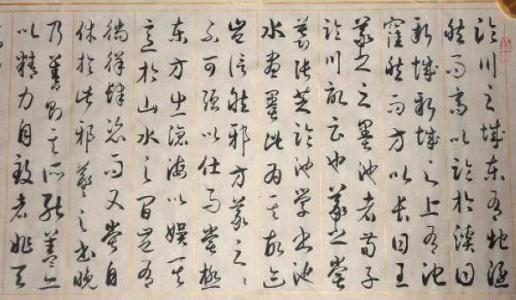 臨川之城東有地隱
然而高以臨於溪曰
新城新城之上有池
窪然而方以長曰王
羲之之墨池者荀子
臨川記云也羲之嘗
慕張芝臨池學書池
水盡墨此為其故迹
豈信然邪方羲之之
不可強以仕而嘗極
東方出滄海以娛其
意於山水之間豈有
徜徉肆恣而又嘗自
休於此邪羲之書晚
乃善則其所能蓋亦
以精力自致者非天